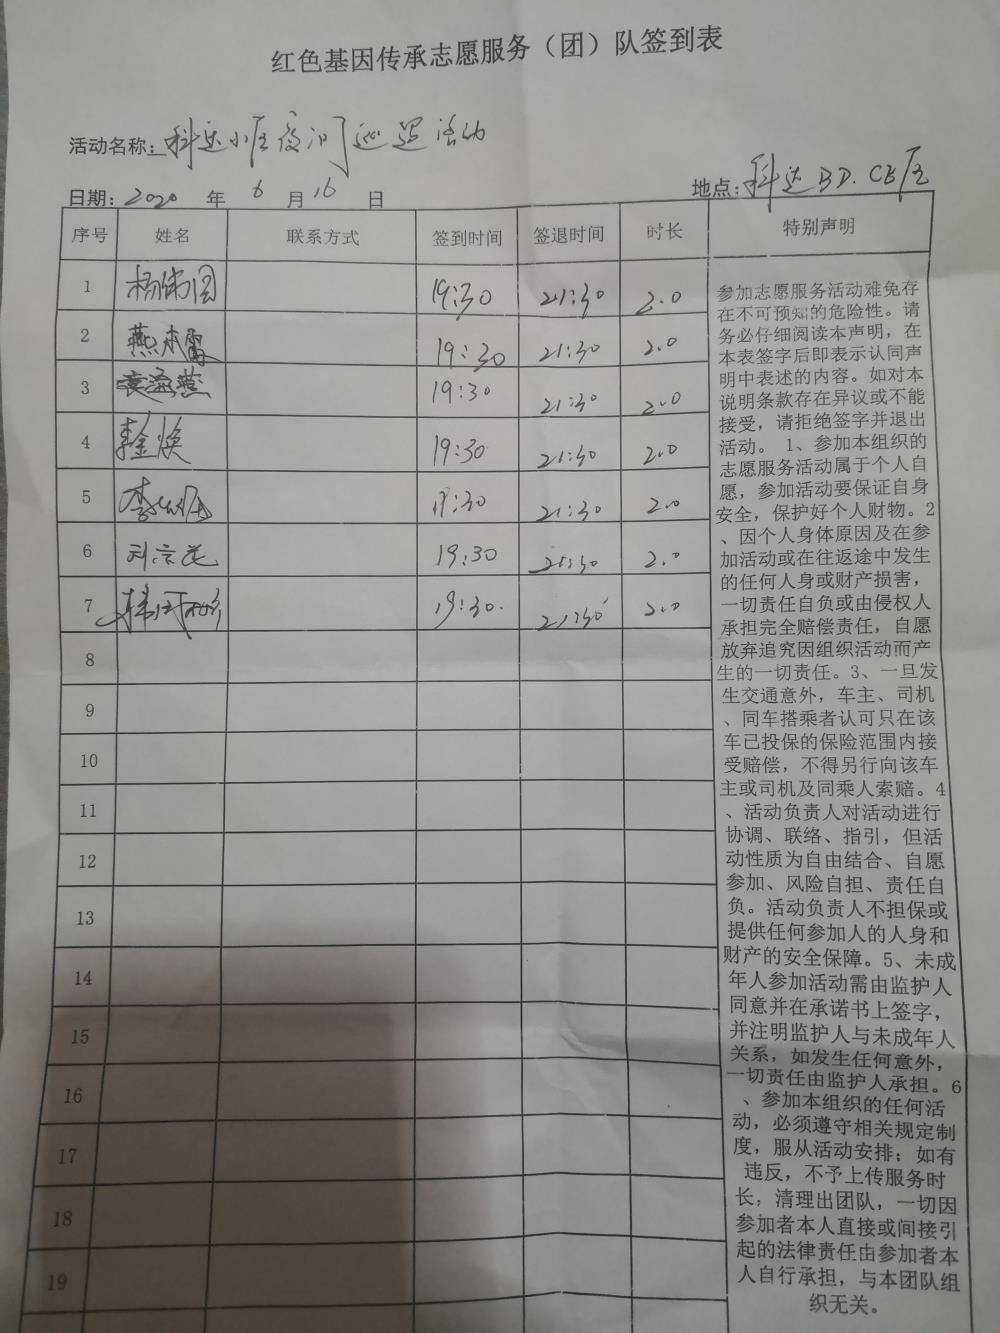 红色基因传承志愿服务（团）队签到表
活动名称：科达小区夜间巡逻活动
日期：2020 年 6 月 16 日 地点：科达BD.CE区
序号 姓名 联系方式 签到时间 签退时间 时长 特别声明
1 19:30 21:30 2.0
2 燕木雷 19:30 21:30 2.0
3 19:30 21:30 2.0
4 19:30 21:30 2.0
5 19:30 21:30 2.0
6 19:30 21:30 2.0
7 19:30 21:30 2.0
8
9
10
11
12
13
14
15
16
17
18
19
参加志愿服务活动难免存
在不可预知的危险性。请
务必仔细阅读本声明，在
本表签字后即表示认同声
明中表述的内容。如对本
说明条款存在异议或不能
接受，请拒绝签字并退出
活动。 1、参加本组织的
志愿服务活动属于个人自
愿，参加活动要保证自身
安全，保护好个人财物。2
、因个人身体原因及在参
加活动或在往返途中发生
的任何人身或财产损害，
一切责任自负或由侵权人
承担完全赔偿责任，自愿
放弃追究因组织活动而产
生的一切责任。3、一旦发
生交通意外，车主、司机
、同车搭乘者认可只在该
车已投保的保险范围内接
受赔偿，不得另行向该车
主或司机及同乘人索赔。4
、活动负责人对活动进行
协调、联络、指引，但活
动性质为自由结合、自愿
参加、风险自担、责任自
负。活动负责人不担保或
提供任何参加人的人身和
财产的安全保障。5、未成
年人参加活动需由监护人
同意并在承诺书上签字，
并注明监护人与未成年人
关系，如发生任何意外，
一切责任由监护人承担。6
、参加本组织的任何活
动，必须遵守相关规定制
度，服从活动安排；如有
违反，不予上传服务时
长，清理出团队，一切因
参加者本人直接或间接引
起的法律责任由参加者本
人自行承担，与本团队组
织无关。